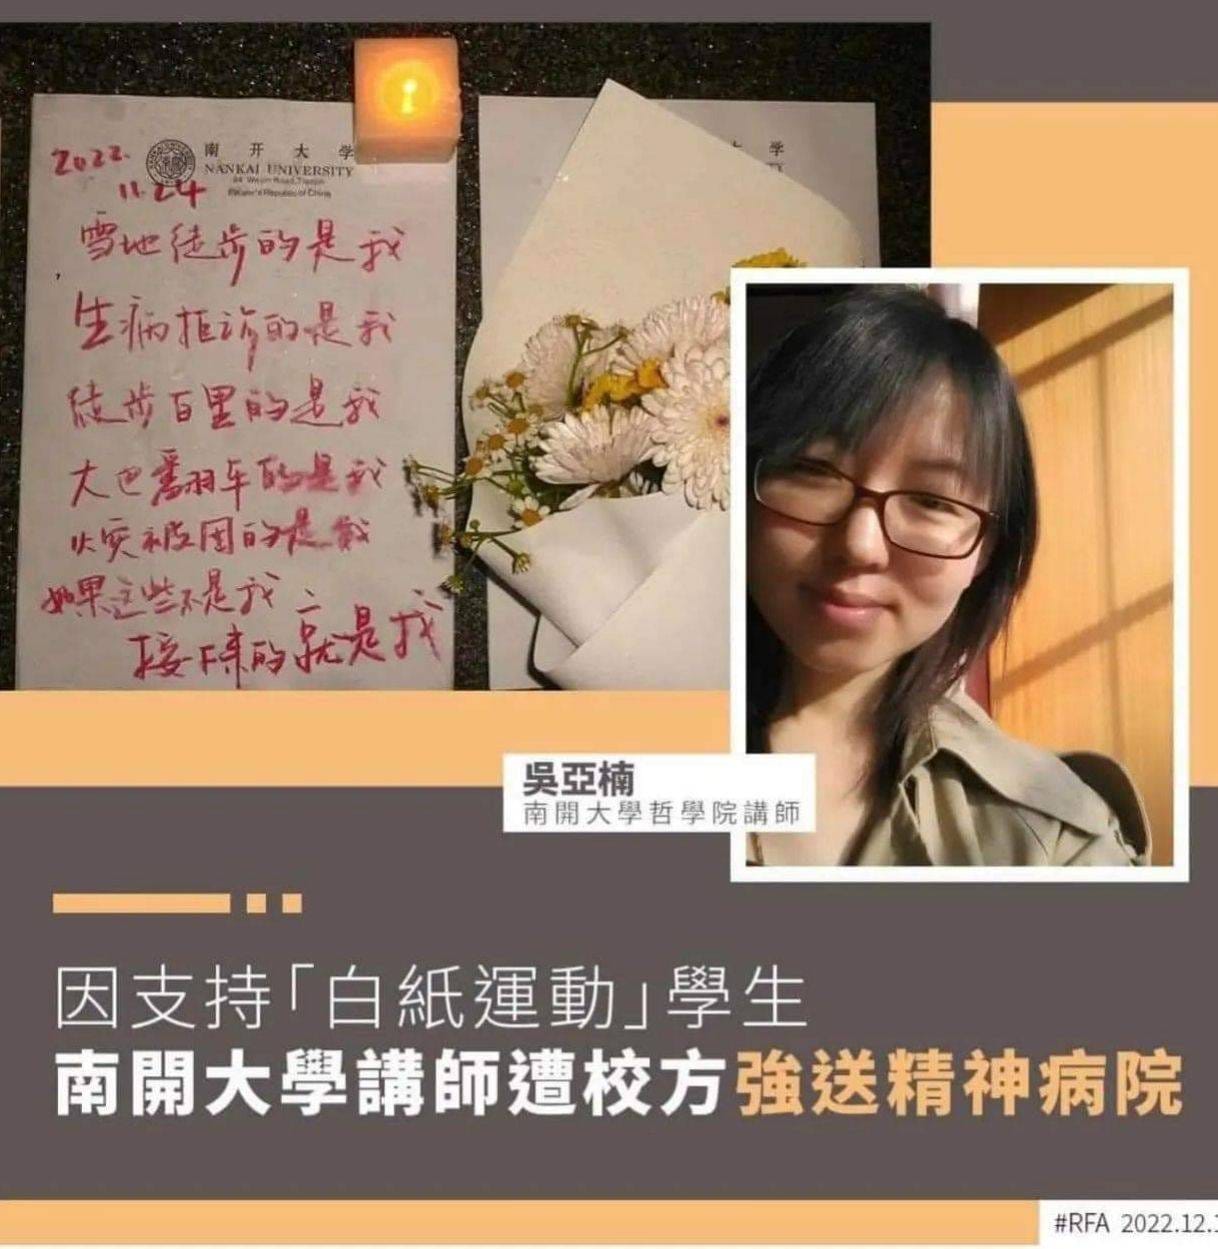 2022.
11.24
南开大学
NANKAI UNIVERSITY
94 Weijin Road, Tianjin
People's Republic of China
雪地徒步的是我
生病拒诊的是我
徒步百里的是我
大巴翻车的是我
火灾被困的是我
如果这些不是我，
接下来的就是我
学
吳亞楠
南開大學哲學院講師
因支持「白紙運動」學生
南開大學講師遭校方強送精神病院
#RFA 2022.12.